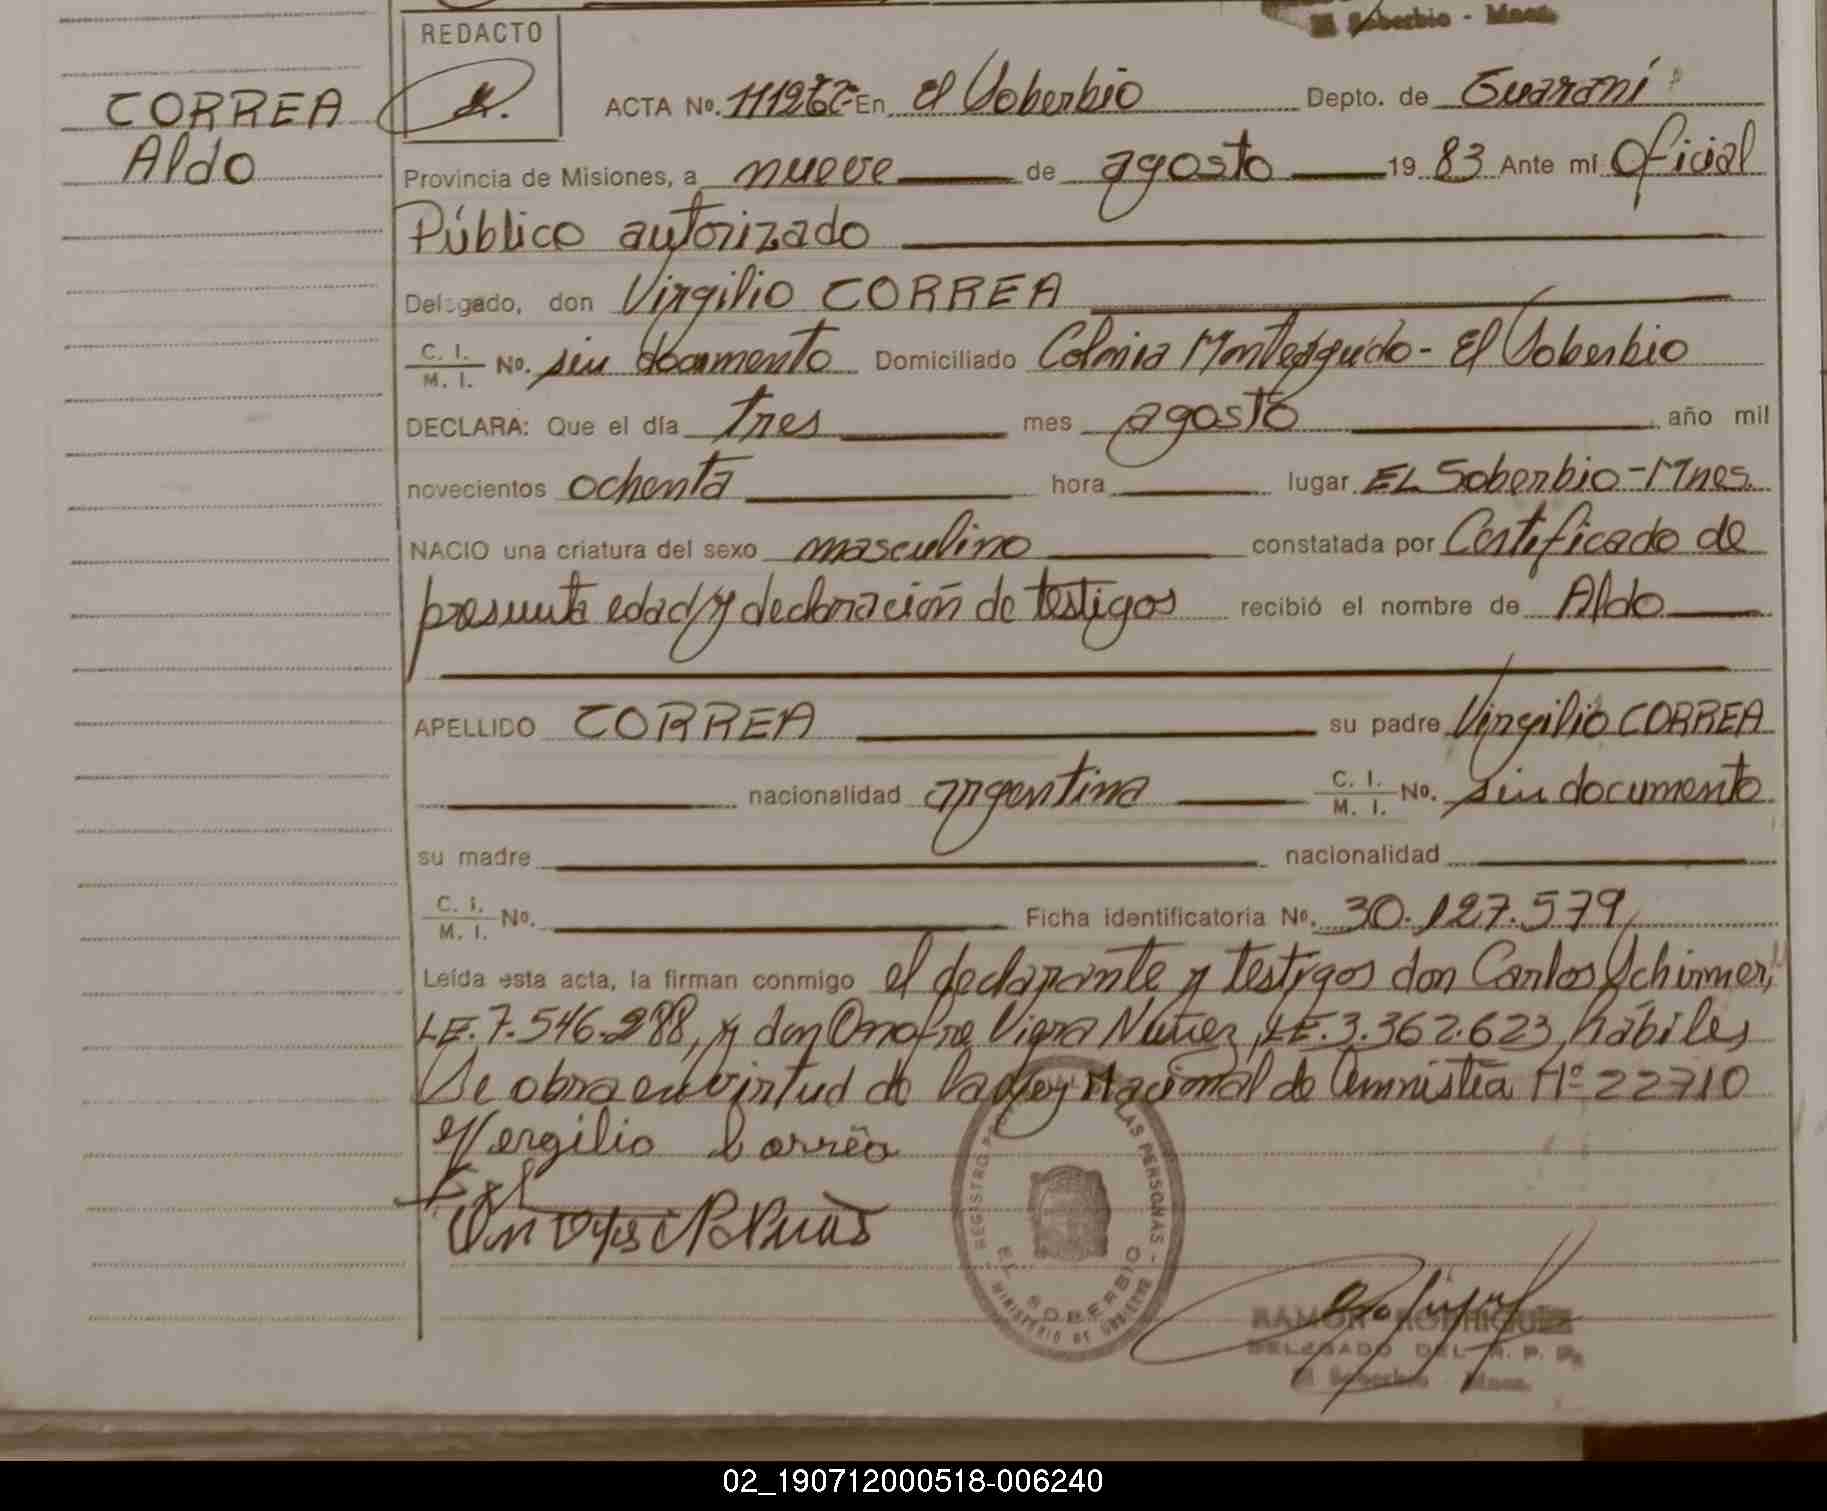 El Soberbio - Mnes.
REDACTO
CORREA
Aldo
ACTA No. En El Soberbio Depto. de Guaraní
Provincia de Misiones, a nueve de agosto 19 83 Ante mí Oficial
Público autorizado
Delegado, don Virgilio CORREA
C. I. / M. I. No. sin documento Domiciliado Colonia Monteagudo - El Soberbio
DECLARA: Que el día tres mes agosto año mil
novecientos ochenta hora lugar EL Soberbio - Mnes.
NACIO una criatura del sexo masculino constatada por Certificado de
presunta edad y declaración de testigos recibió el nombre de Aldo
APELLIDO CORREA su padre Virgilio CORREA
nacionalidad argentina C. I. / M. I. No. sin documento
su madre nacionalidad
C. I. / M. I. No. Ficha identificatoria No. 30.127.579
Leída esta acta, la firman conmigo el declarante y testigos don Carlos Schirmer,
LE. 7.546.288, y don Onofre Viera Nuñez, LE. 3.362.623, hábiles
Se obra en virtud de la Ley Nacional de Amnistía Nº 22710
Vergilio Corrêa
REGISTRO LAS PERSONAS -
EL SOBERBIO
MINISTERIO DE GOBIERNO
RAMON RODRIGUEZ
DELEGADO DEL R. P. P.
El Soberbio Mnes.
02_190712000518-006240